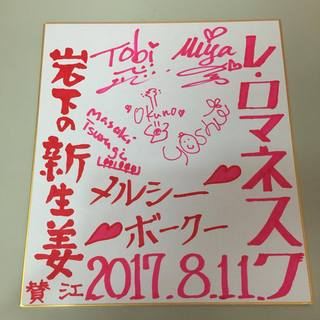 レ・ロマネスク
Tobi
Miya
Okuno
Yoshie
Masaki
Tsurugi
メルシー
ボークー
岩下の新生姜
賛江
2017.8.11.